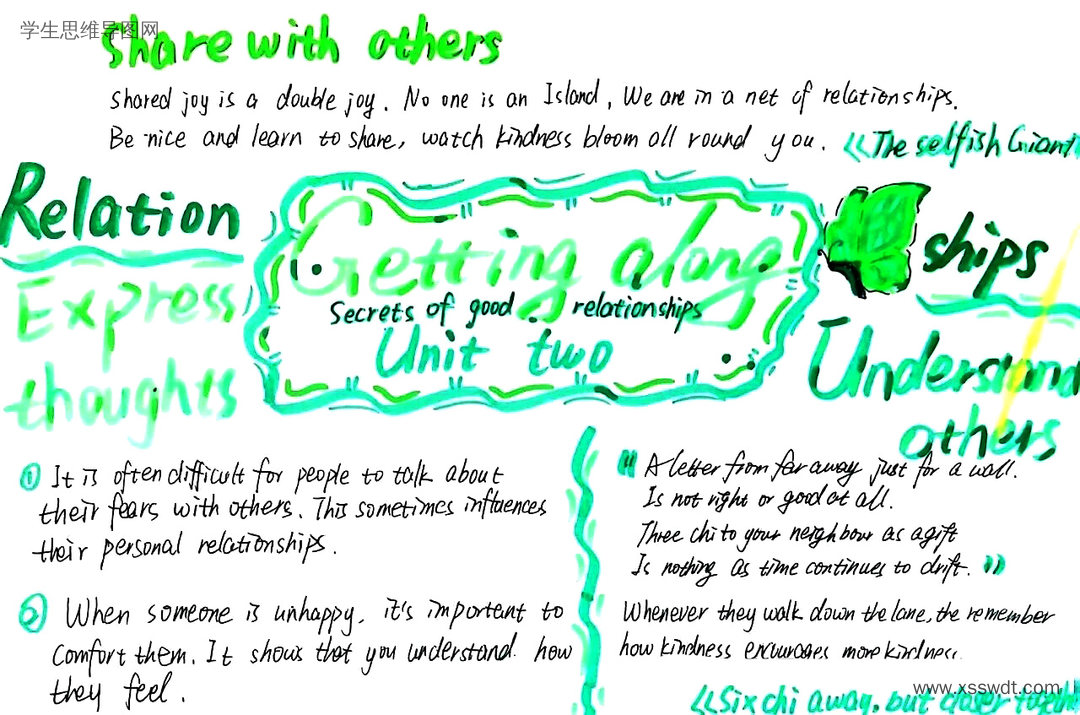 学生思维导图网
Share with others
Shared joy is a double joy. No one is an Island, We are in a net of relationships.
Be nice and learn to share, watch kindness bloom all round you.
《The selfish Giant
Relation
ships
Getting along
Secrets of good relationships
Unit two
Express
thoughts
Understand
others
① It is often difficult for people to talk about
their fears with others. This sometimes influences
their personal relationships.
② When someone is unhappy, it's important to
comfort them. It shows that you understand how
they feel.
"A letter from far away just for a wall.
Is not right or good at all.
Three chi to your neighbour as a gift
Is nothing as time continues to drift."
Whenever they walk down the lane, the remember
how kindness more kindness.
www.xsswdt.com
《Six chi away, but closer togeth